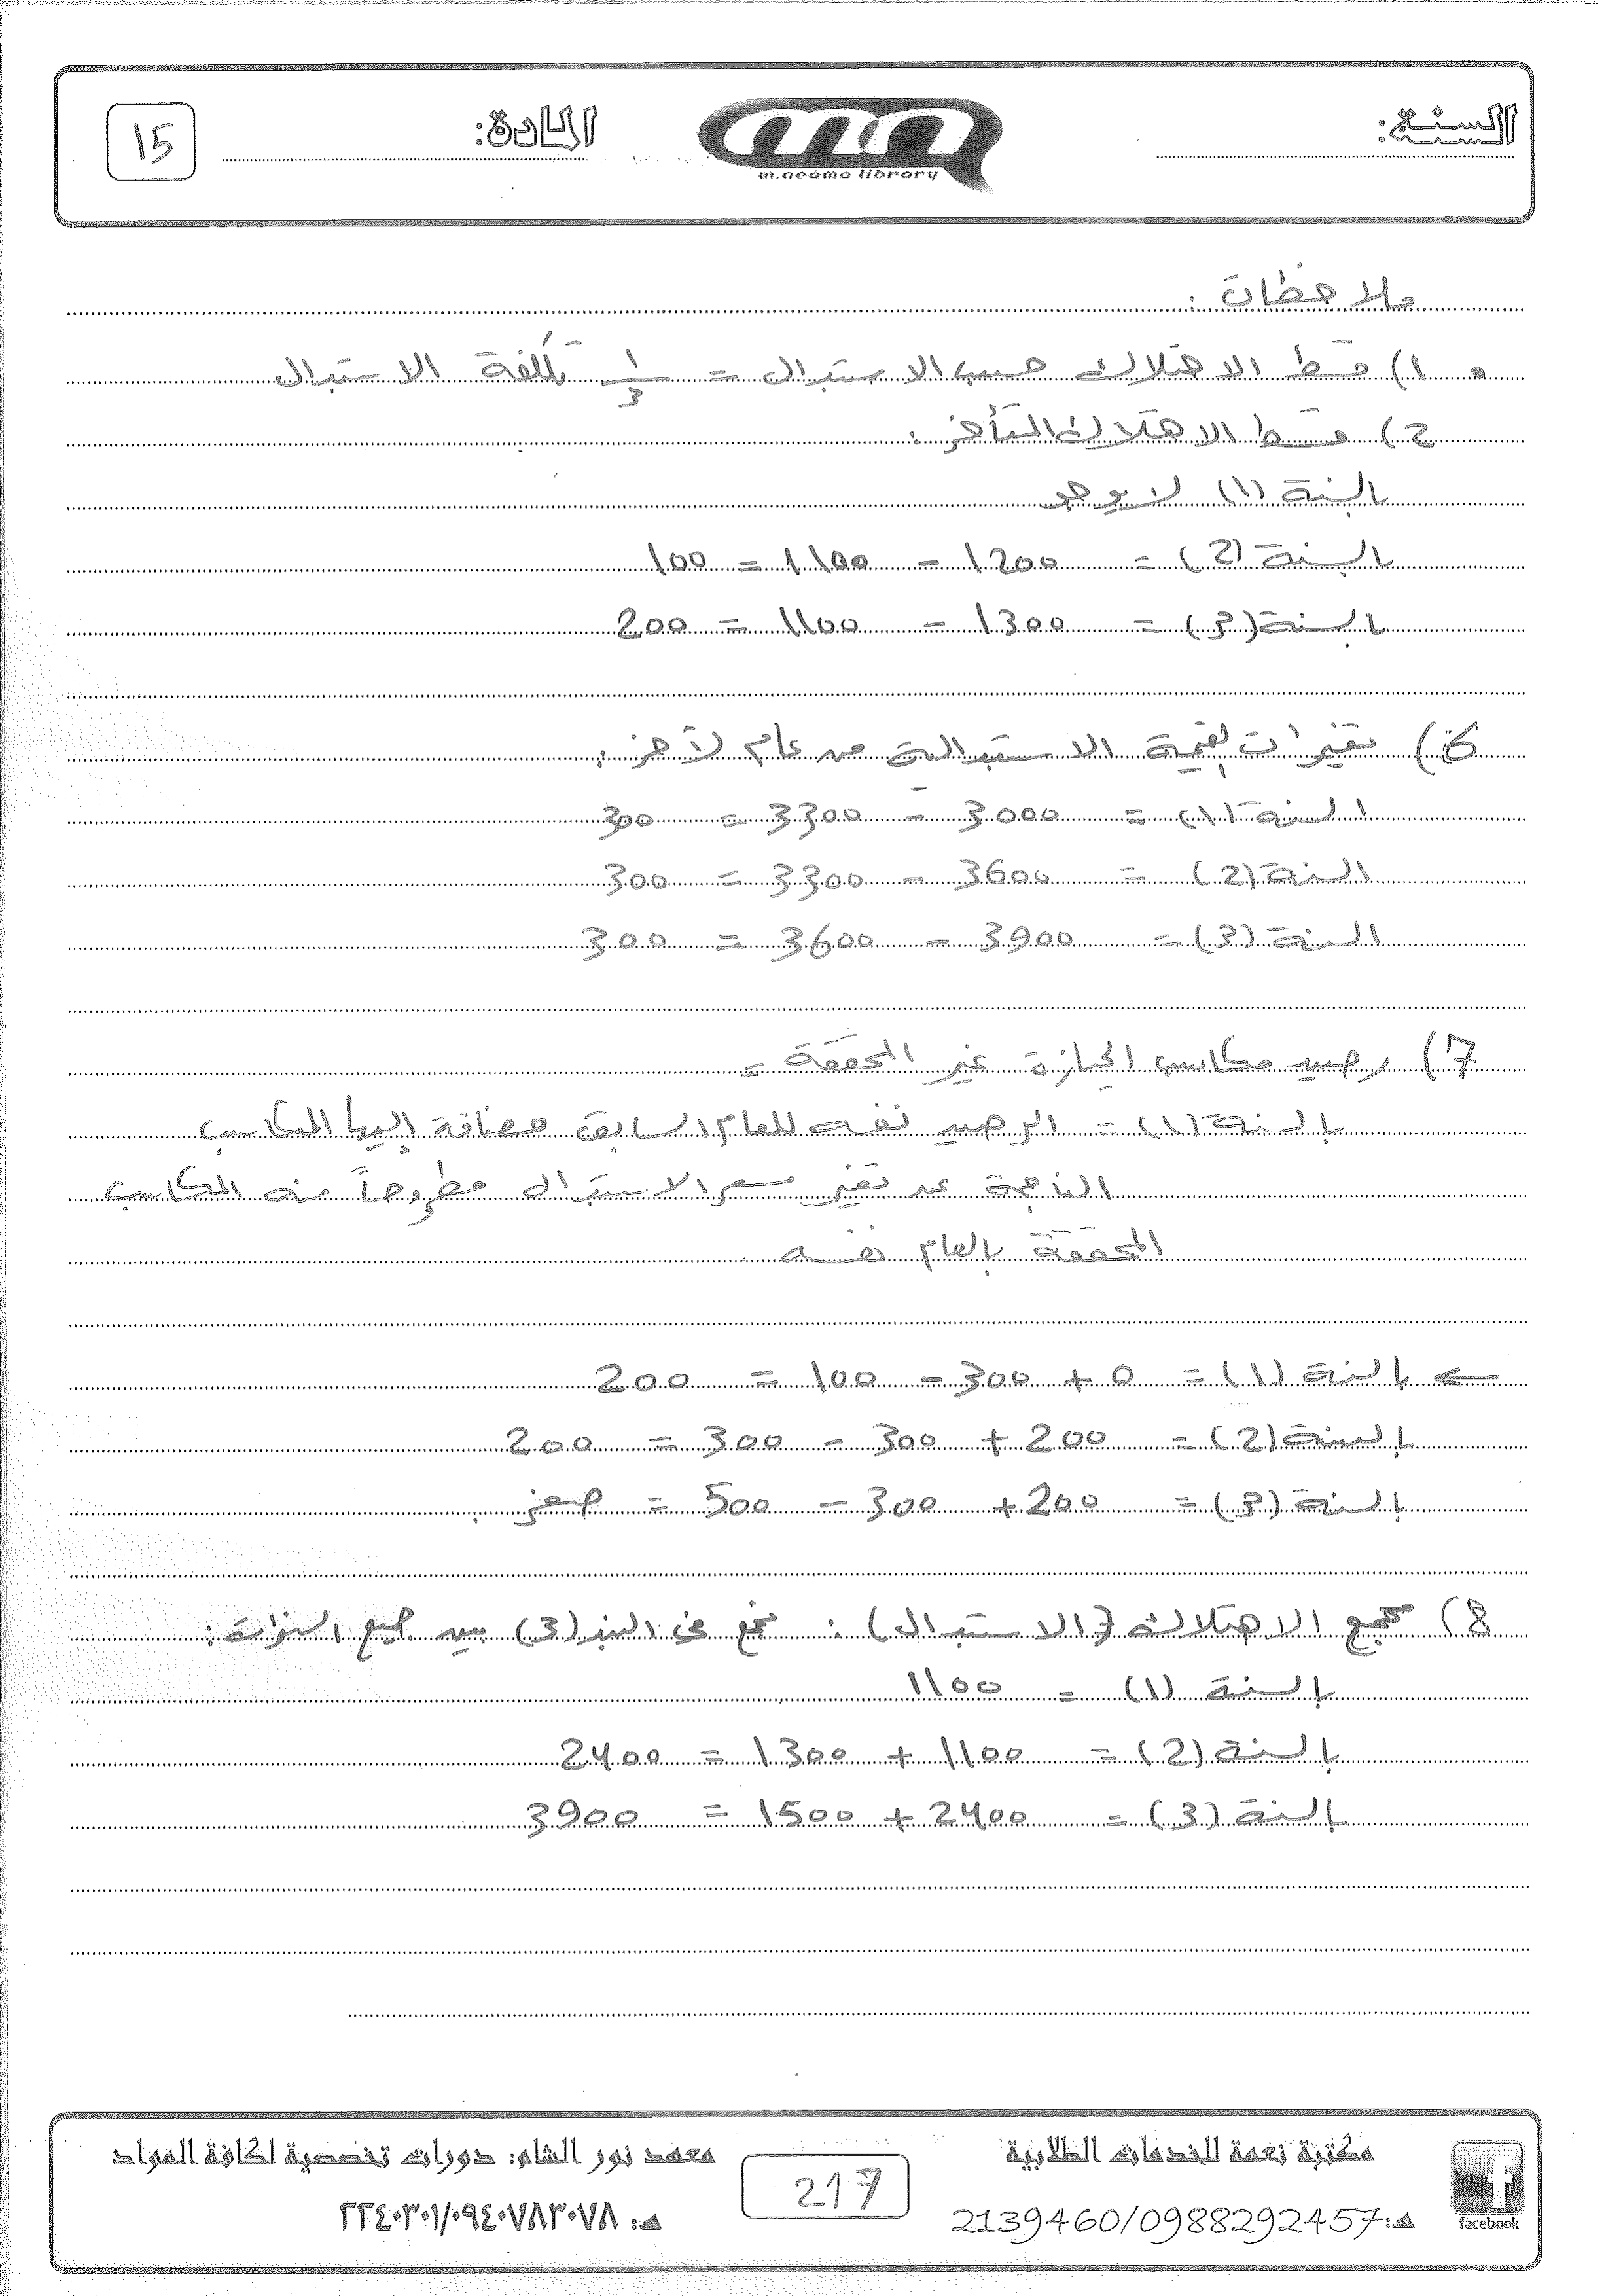 السنة:
المادة:
15
m.neama library
ملاحظات :
1) قسط الاهتلاك حسب الاستبدال = 1/3 تكلفة الاستبدال
2) قسط الاهتلاك المتأخر :
بالسنة (1) لا يوجد
بالسنة (2) = 1200 - 1100 = 100
بالسنة (3) = 1300 - 1100 = 200
6) تغيرات القيمة الاستبدالية من عام لآخر :
السنة (1) = 3000 - 3300 = 300
السنة (2) = 3600 - 3300 = 300
السنة (3) = 3900 - 3600 = 300
7) رصيد مكاسب الحيازة غير المحققة =
بالسنة (1) = الرصيد نفسه للعام السابق مضافة إليها المكاسب
الناجمة عن تغير سعر الاستبدال مطروحاً منه المكاسب
المحققة بالعام نفسه
← بالسنة (1) = 0 + 300 - 100 = 200
بالسنة (2) = 200 + 300 - 300 = 200
بالسنة (3) = 200 + 300 - 500 = صفر .
8) مجمع الاهتلاك (الاستبدال) : نجمع في البند (3) بين جميع السنوات :
بالسنة (1) = 1100
بالسنة (2) = 1100 + 1300 = 2400
بالسنة (3) = 2400 + 1500 = 3900
مكتبة نعمة للخدمات الطلابية
هـ: 2139460/0988292457
217
معهد نور الشام: دورات تخصصية لكافة المواد
هـ: ٢٢٤٠٣٠١/٠٩٤٠٧٨٣٠٧٨
facebook